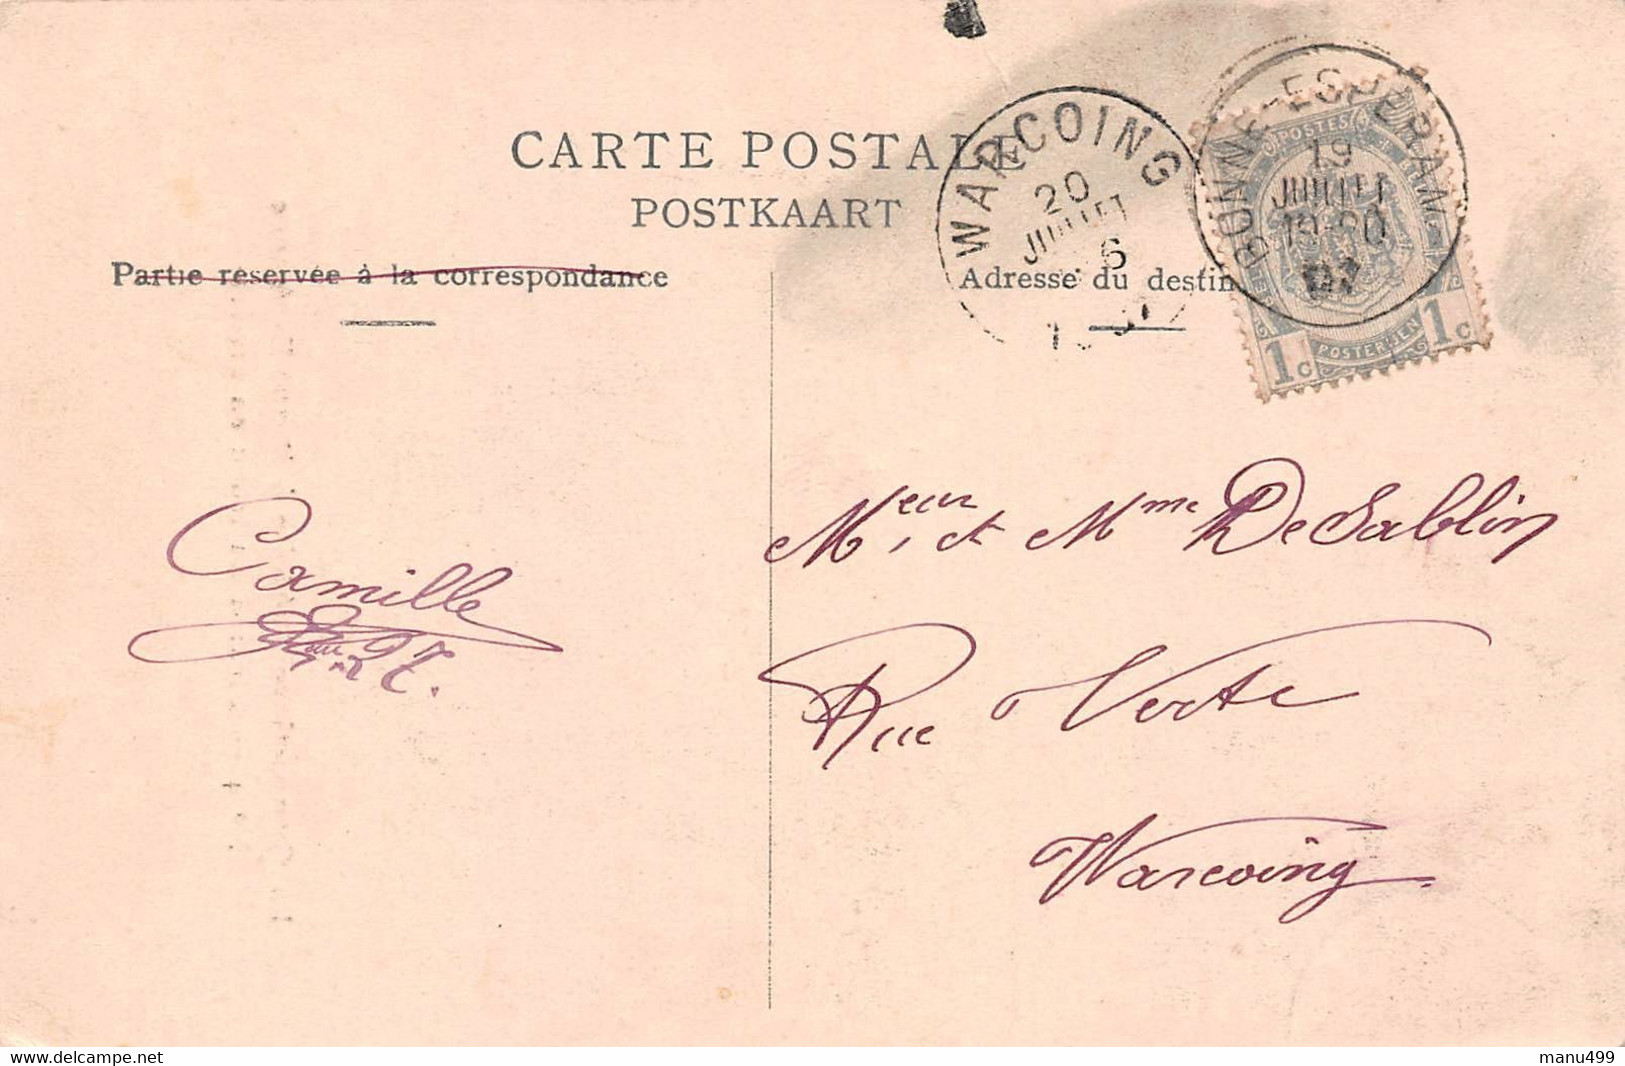 CARTE POSTALE
POSTKAART
Partie réservée à la correspondance
Adresse du destin
WARCOING
20
JUILLET
6
BONNE-ESPERAN
19
JUILLET
19-20
POSTES
POSTERIJEN
1c 1c
Meur et Mme De Sablin
Rue Verte
Warcoing
Camille
delcampe.net
manu499